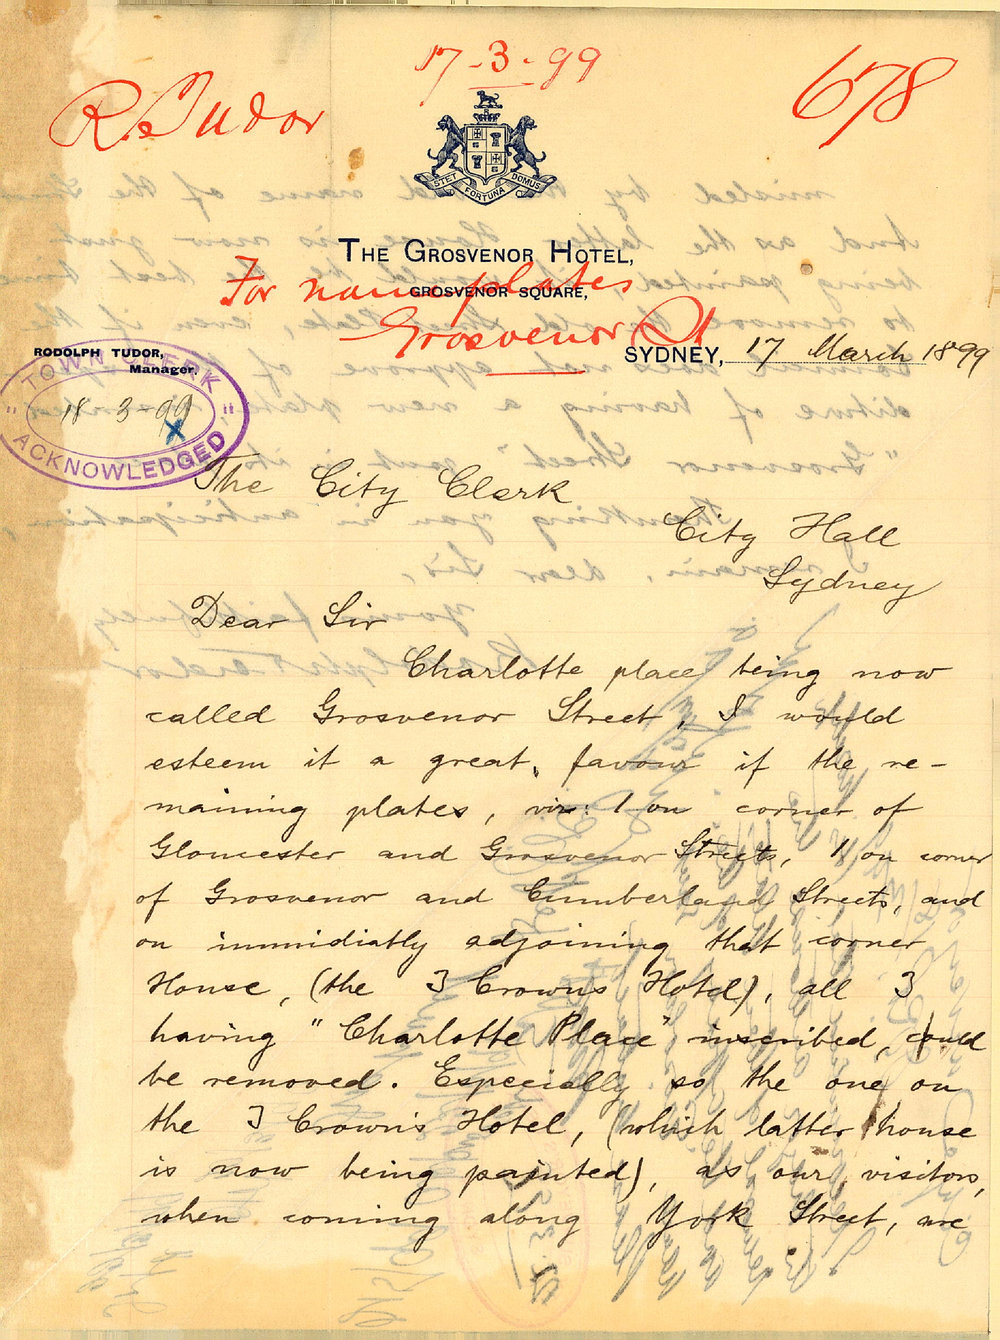 17-3-99
R. Tudor
678
R
STET FORTUNA DOMUS
THE GROSVENOR HOTEL,
For nameplates
GROSVENOR SQUARE,
Grosvenor St
RODOLPH TUDOR,
Manager.
SYDNEY, 17 March 1899
TOWN CLERK
18-3-99
ACKNOWLEDGED
The City Clerk
City Hall
Sydney
Dear Sir
Charlotte place being now
called Grosvenor Street, I would
esteem it a great favour if the re-
maining plates, viz: 1 on corner of
Gloucester and Grosvenor Streets, 1 on corner
of Grosvenor and Cumberland Streets, and
on immidiatly adjoining that corner
House, (the 3 Crowns Hotel), all 3
having "Charlotte Place" inscribed, could
be removed. Especially so the one on
the 3 Crown's Hotel, (which latter house
is now being painted), as our visitors,
when coming along York Street, are